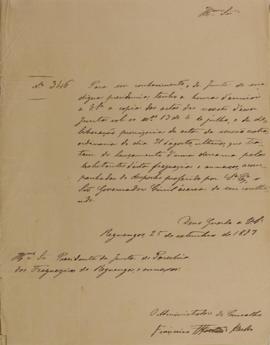 Illmo Sr
Nº 346
Para seu conhecimento, e da Junta da sua
digna presidencia, tenho a honra d'enviar
a V.ª a copia das actas das sessões d'essa
Junta sob os nºs 13 de 4 de julho, e de
liberação da acta da sessão extra
ordinaria do dia 31 agosto ultimo, que
tratam do lançamento d'uma derrama pelos
habitantes d'esta freguezia e annexas, acom
panhadas do despacho proferido por Sª Exª
o Snr Governador Civil
Deus Guarde a V.ª
Reguengos, 25 de setembro de 1887
Illmo Sr Presidente da Junta de Parochia
das Freguezias de Reguengos e annexas
O Administrador do Concelho
Francisco